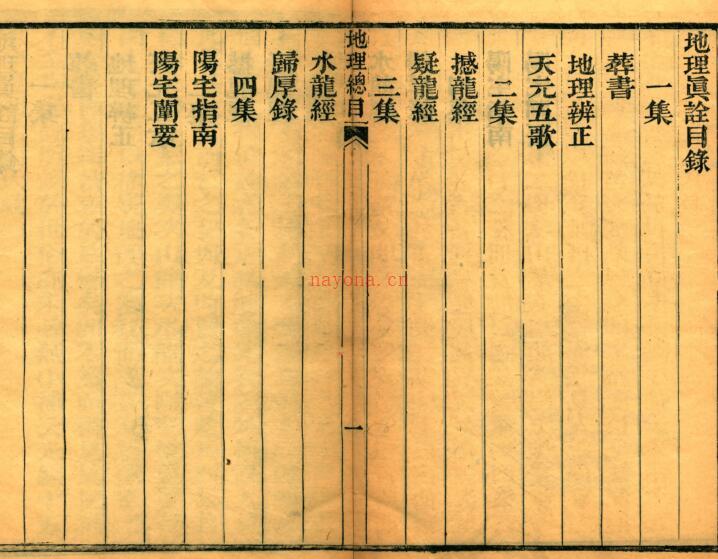 地理眞詮目錄
一集
葬書
地理辨正
天元五歌
二集
撼龍經
疑龍經
三集
地理總目
一
水龍經
歸厚錄
四集
陽宅指南
陽宅闡要
nayona.cn